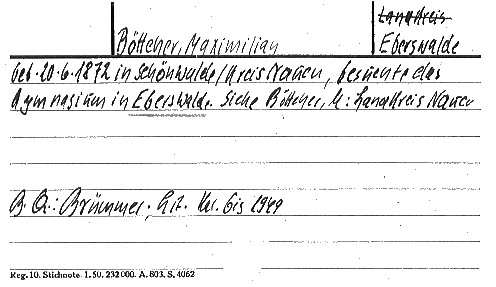 Landkreis
Böttcher, Maximilian Eberswalde
geb. 20.6.1872 in Schönwalde/Kreis Nauen, besuchte das
Gymnasium in Eberswalde. Siehe Böttcher, M: Landkreis Nauen
B. Q.: Brümmer, Lit. Kal. bis 1949
Reg. 10. Stichnote. 1. 50. 232000. A. 803. S. 4062